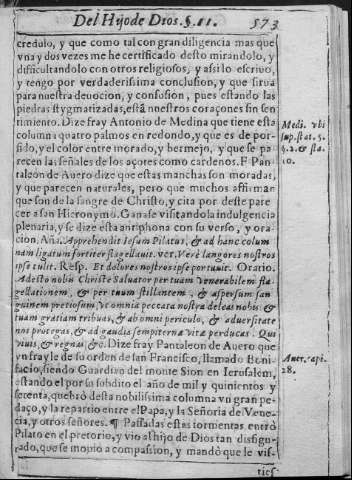 Del Hijo de Dios. §. 11. 573
credulo, y que como tal con gran diligencia mas que
vna y dos vezes me he certificado desto mirandolo, y
difficultandolo con otros religiosos, y assi lo escriuo,
y tengo por verdaderissima conclusion, y que sirua
para nuestra deuocion, y confusion, pues estando las
piedras stygmatizadas, están nuestros coraçones sin sen
timiento. Dize fray Antonio de Medina que tiene esta
columna quatro palmos en redondo, y que es de por-
fido, y el color entre morado, y bermejo, y que se pa-
recen las señales de los açotes como cardenos. F. Pan
taleon de Auero dize que estas manchas son moradas,
y que parecen naturales, pero que muchos affirman
que son de la sangre de Christo, y cita por deste pare
cer a san Hieronymo. Ganase visitandola indulgencia
plenaria, y se dize esta antiphona con su verso, y ora
cion. Aña. Apprehendit Iesum Pilatus, & ad hanc colum
nam ligatum fortiter flagellauit. ver. Verè langores nostros
ipse tulit. Resp. Et dolores nostros ipse portauit. Oratio.
Adesto nobis Christe Saluator per tuam venerabilem fla-
gellationem, & per tuum stillantem, & aspersum san
guinem pretiosum, vt omnia peccata nostra deleas nobis &
tuam gratiam tribuas, & ab omni periculo, & aduersitate
nos protegas, & ad gaudia sempiterna vitæ perducas. Qui
viuis, & regnas &c. Dize fray Pantaleon de Auero que
vn frayle de su orden de san Francisco, llamado Boni-
facio, siendo Guardian del monte Sion en Ierusalem,
estando el por su subdito el año de mil y quinientos y
sesenta, quebrò desta nobilissima columna vn gran pe-
daço, y la repartio entre el Papa, y la Señoria de Vene-
cia, y otros señores. ¶ Passadas estas tormentas entrò
Pilato en el pretorio, y vio al hijo de Dios tan disfigu-
rado, que se mouio a compassion, y mandò que le vis-
ties
Medi. vbi
sup. stat. 5.
§. 2. & sta.
10.
Auer. capi.
28.